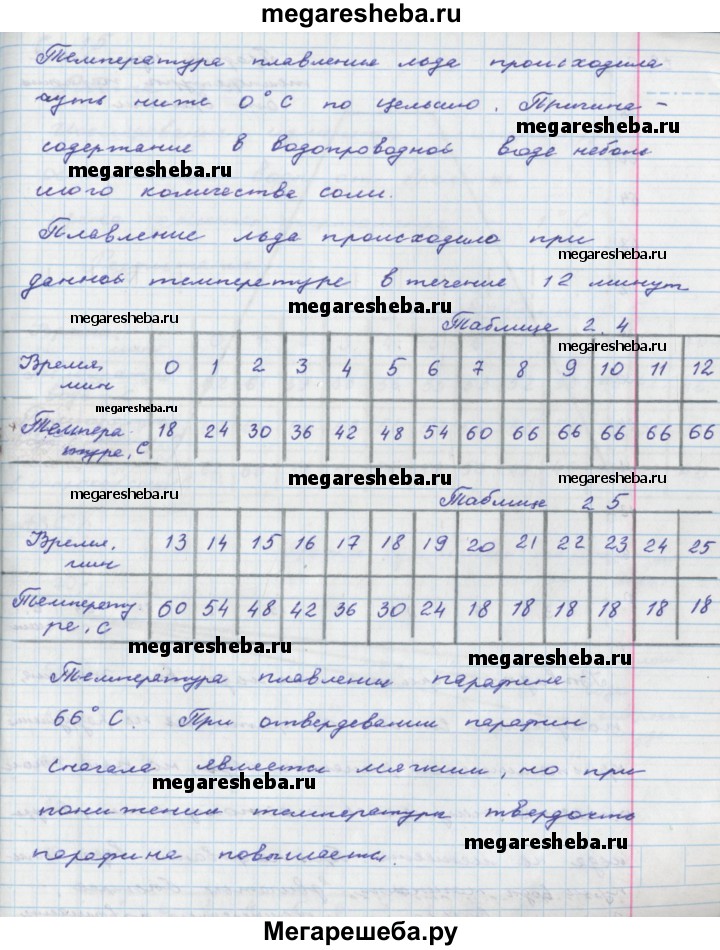 megaresheba.ru
Температура плавление льда происходила
чуть ниже 0°С по цельсию. Причина -
megaresheba.ru
содержание в водопроводной воде неболь
megaresheba.ru
шого количества соли.
Плавление льда происходило при
megaresheba.ru
данной температуре в течение 12 минут
megaresheba.ru megaresheba.ru
Таблице 2.4
megaresheba.ru
Время, мин 0 1 2 3 4 5 6 7 8 9 10 11 12
megaresheba.ru
Темпера туре, С 18 24 30 36 42 48 54 60 66 66 66 66 66
megaresheba.ru megaresheba.ru megaresheba.ru
Таблице 2 5
Время, мин 13 14 15 16 17 18 19 20 21 22 23 24 25
Температу ре, С 60 54 48 42 36 30 24 18 18 18 18 18 18
megaresheba.ru megaresheba.ru
Температура плавлении парафина -
66°С. При отвердевании парафин
сначала является мягким, но при
megaresheba.ru
понижении температуры твердость
megaresheba.ru
парафина повышается.
Мегарешеба.ру